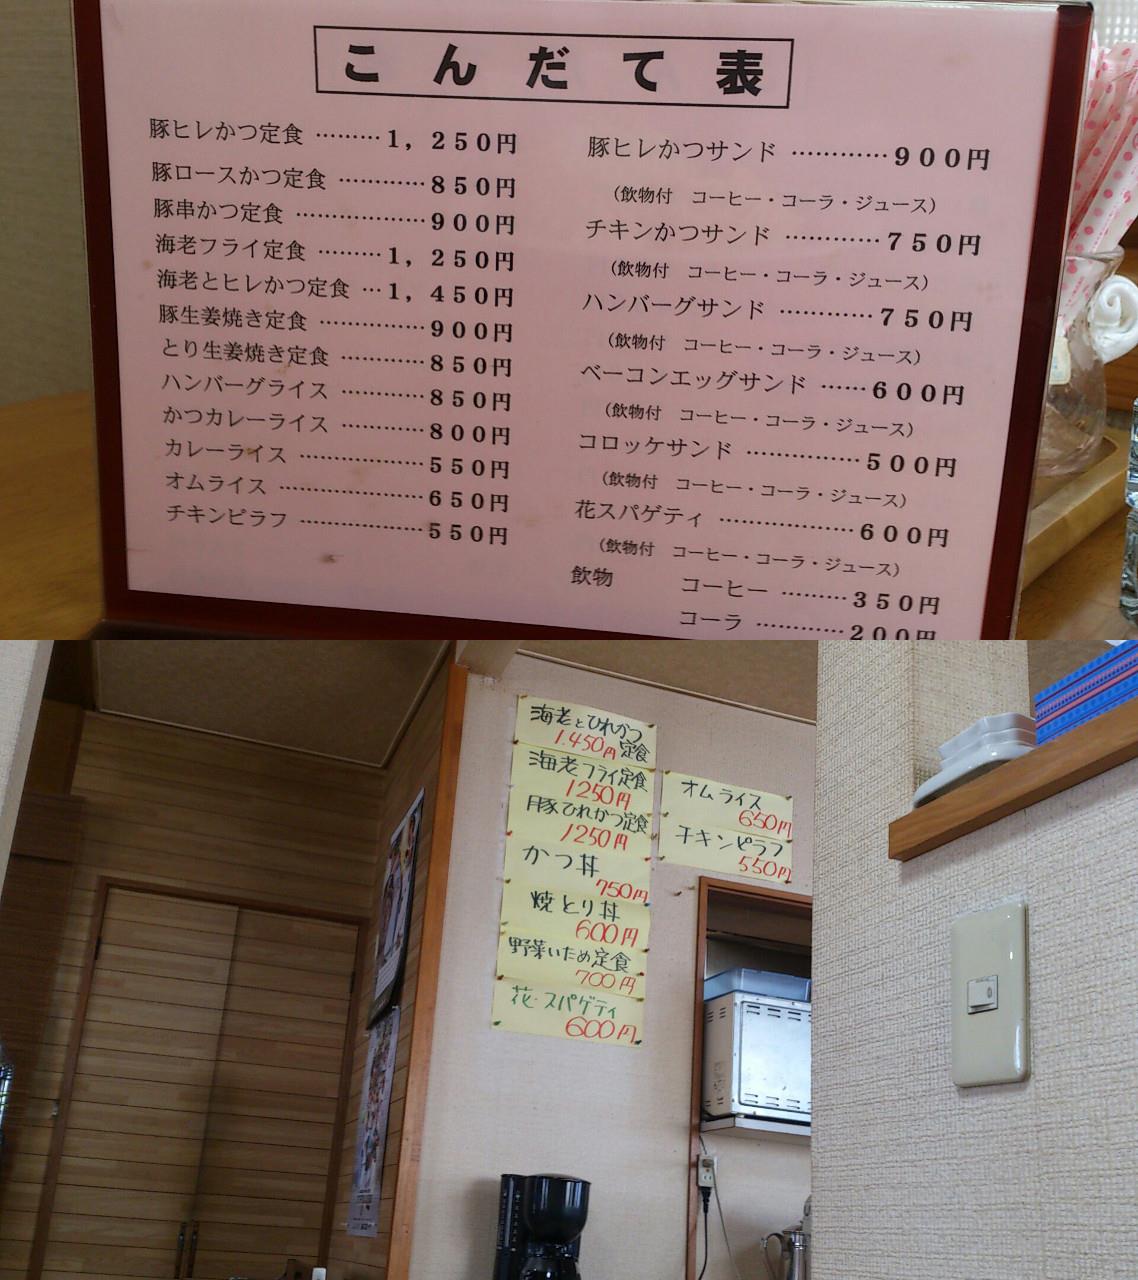 こんだて表
豚ヒレかつ定食 ………1，250円
豚ロースかつ定食 …………850円
豚串かつ定食 ………………900円
海老フライ定食 …………1，250円
海老とヒレかつ定食 …1，450円
豚生姜焼き定食 ……………900円
とり生姜焼き定食 …………850円
ハンバーグライス …………850円
かつカレーライス …………800円
カレーライス ………………550円
オムライス …………………650円
チキンピラフ ………………550円
豚ヒレかつサンド …………900円
（飲物付　コーヒー・コーラ・ジュース）
チキンかつサンド …………750円
（飲物付　コーヒー・コーラ・ジュース）
ハンバーグサンド …………750円
（飲物付　コーヒー・コーラ・ジュース）
ベーコンエッグサンド ……600円
（飲物付　コーヒー・コーラ・ジュース）
コロッケサンド ……………500円
（飲物付　コーヒー・コーラ・ジュース）
花スパゲティ ………………600円
（飲物付　コーヒー・コーラ・ジュース）
飲物　コーヒー ………350円
コーラ …………200円
海老とひれかつ
1.450円 定食
海老フライ定食
1250円
豚ひれかつ定食
1250円
かつ丼
750円
焼とり丼
600円
野菜いため定食
700円
花・スパゲティ
600円
オムライス
650円
チキンピラフ
550円